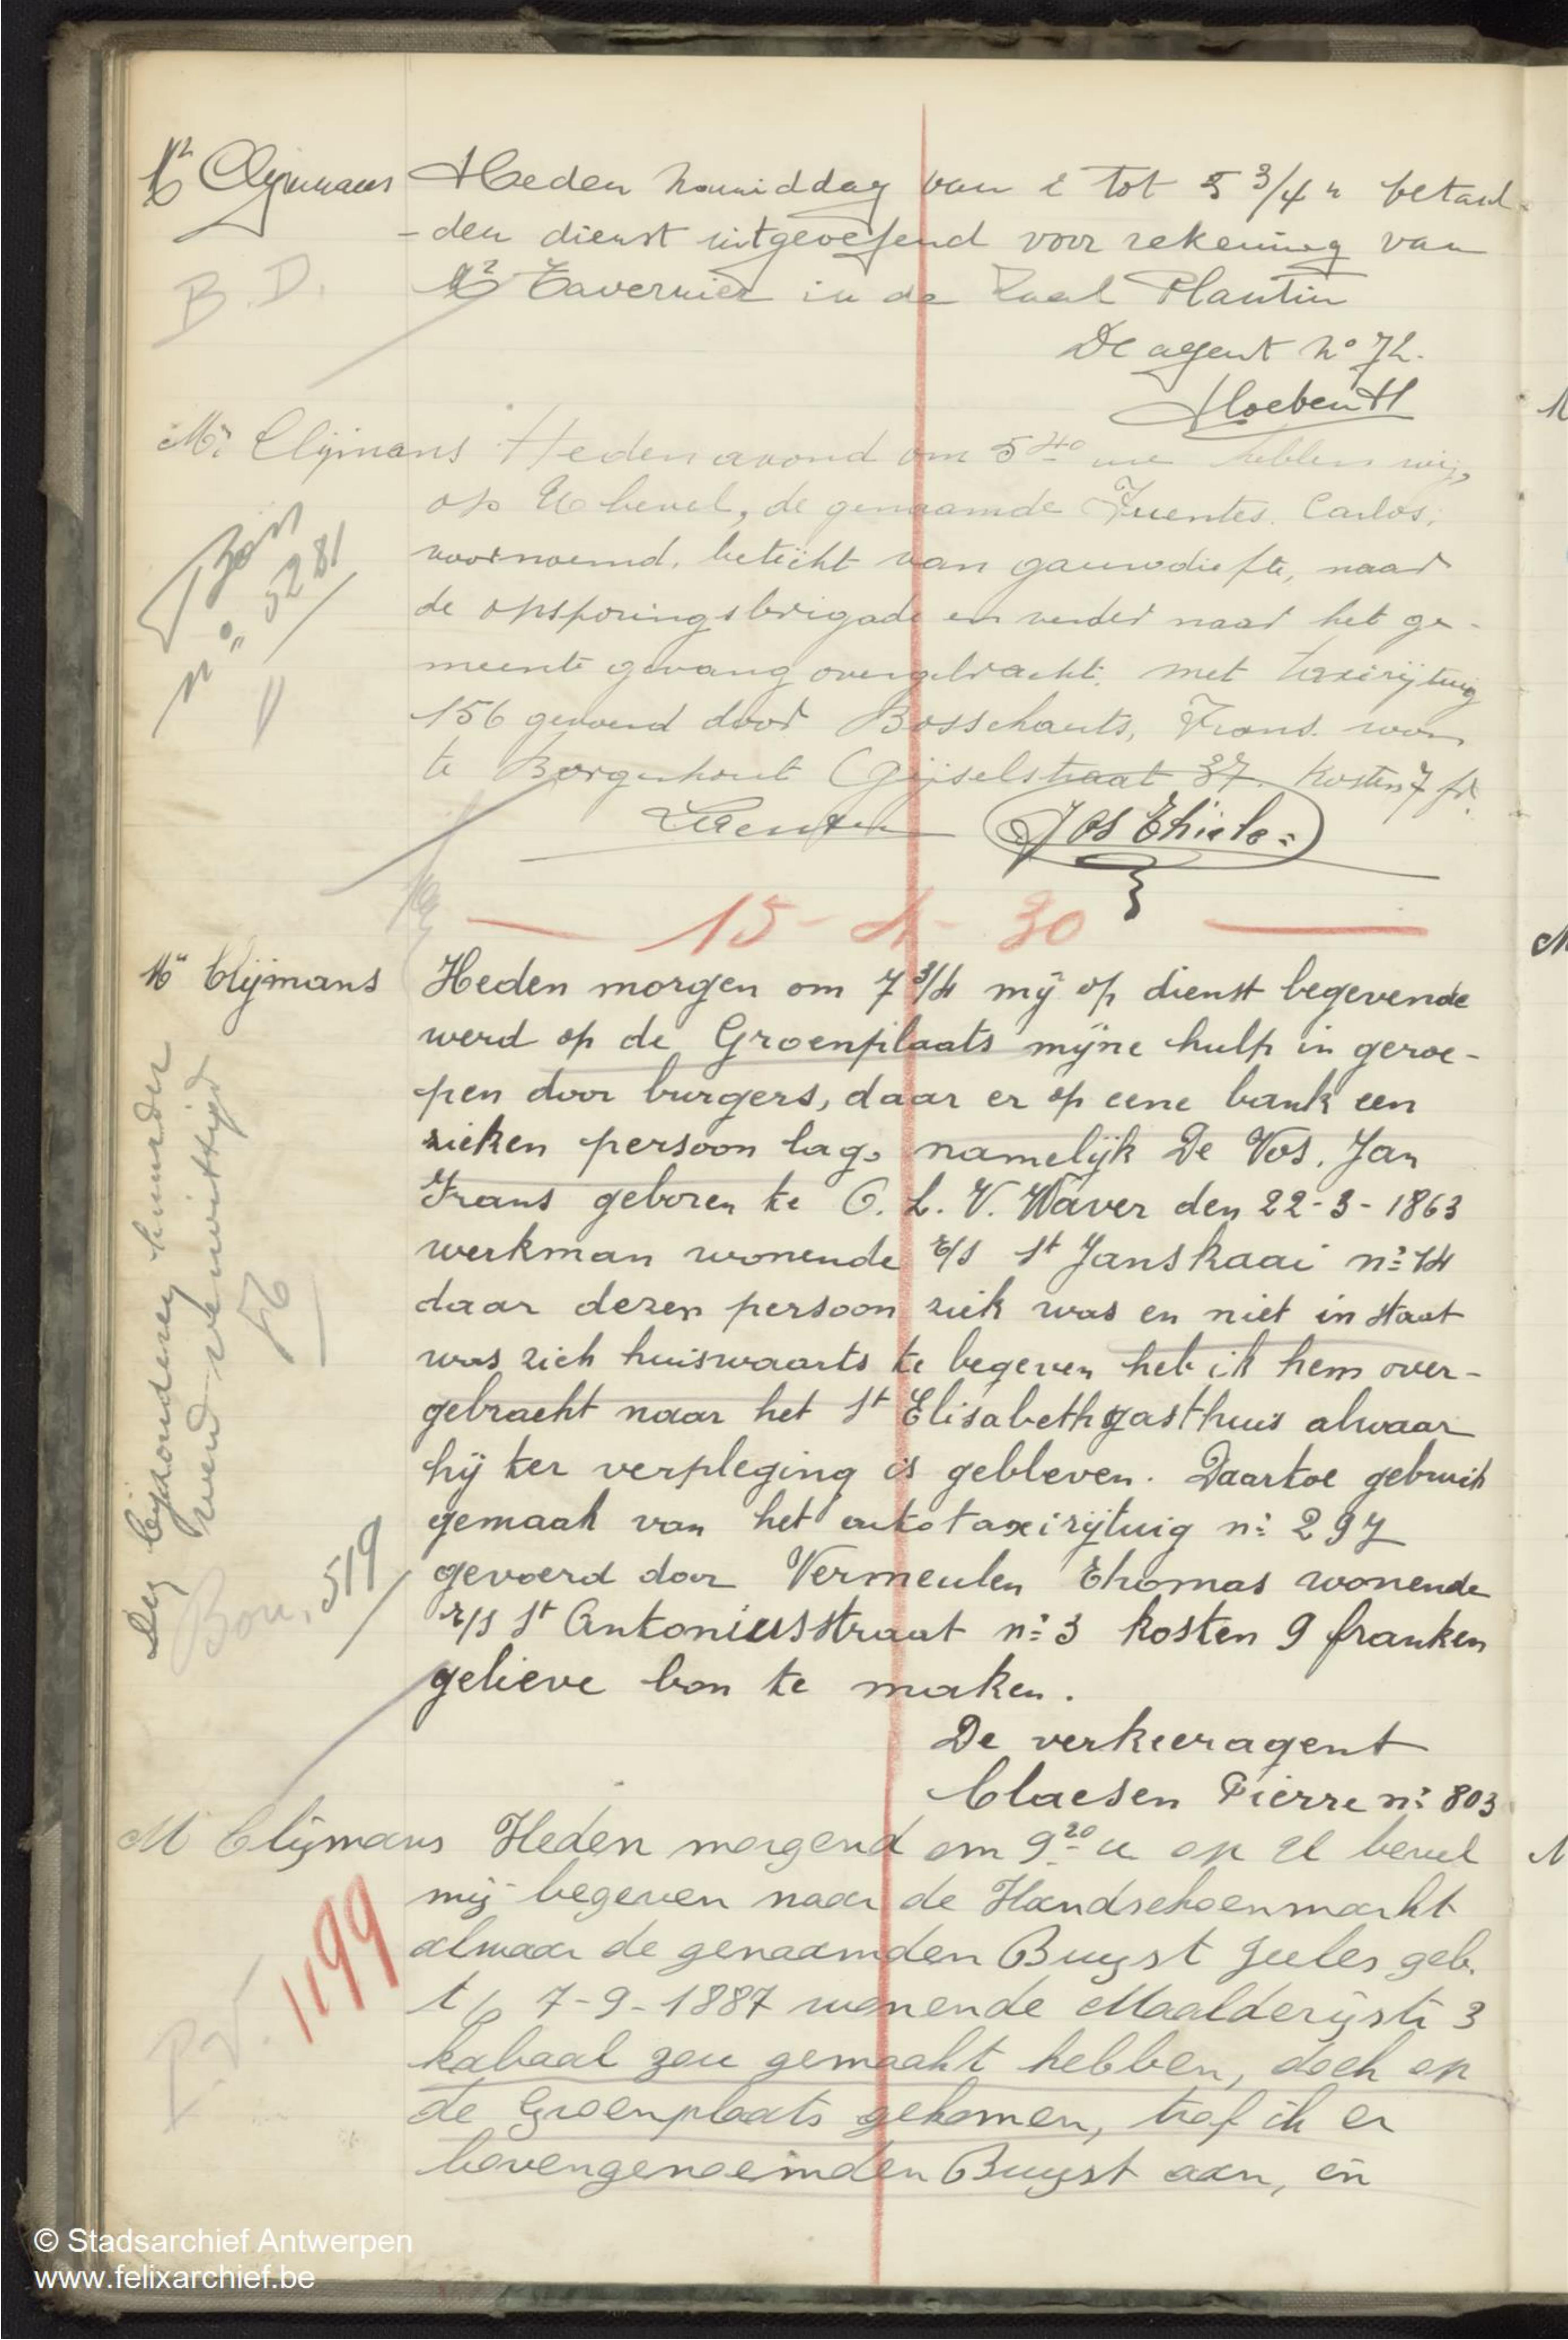 Mr Clijmans
Heden namiddag van 2 tot 5 3/4 u betaal-
-den dienst uitgeoefend voor rekening van
Mr Tavernier in de Zaal Plantin
B.D.
De agent No 72.
Hoeben H
Mr Clijmans
Heden avond om 5 40 ure hebben wij,
op U bevel, de genaamde Fuentes. Carlos,
voornoemd, beticht van gauwdiefte, naar
de opsporingsbrigade en verder naar het ge-
meente gevang overgebracht, met taxirijtuig
156 gevoerd door Bosschaerts, Frans. won
te Borgerhout Gijselstraat 37. Kosten 7 fr.
n° 5281
Jos Thiels
15 - 4 - 30
Mr Clijmans
Heden morgen om 7 3/4 mij op dienst begevende
werd op de Groenplaats mijne hulp in geroe-
pen door burgers, daar er op eene bank een
zieken persoon lag, namelijk De Vos, Jan
Frans geboren te O. L. V. Waver den 22-3-1863
werkman wonende t/s St Janskaai n: 14
daar dezen persoon ziek was en niet in staat
was zich huiswaarts te begeven heb ik hem over-
gebracht naar het St Elisabethgasthuis alwaar
hij ter verpleging is gebleven. Daartoe gebruik
gemaak van het autotaxirijtuig n: 297
gevoerd door Vermeulen Thomas wonende
t/s St Antoniusstraat n: 3 kosten 9 franken
gelieve bon te maken.
Den bijzonderen huurder
werd verwittigd
Bon, 519
De verkeeragent
Claesen Pierre n: 803
M Clijmans
Heden morgend om 9 20 u op U bevel
mij begeven naar de Handschoenmarkt
alwaar de genaamden Buyst Jules geb.
t/s 7-9-1887 wonende Maalderijstr 3
kabaal zou gemaakt hebben, doch op
de Groenplaats gekomen, trof ik er
bovengenoemden Buyst aan, en
P.V. 1199
© Stadsarchief Antwerpen
www.felixarchief.be